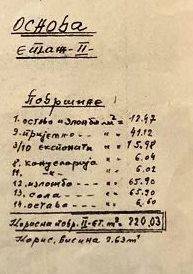 ОСНОВА
ЕТАЖ - II -
Површине
1. остава и изложби м² = 12.47
9. пријемно " " 41.12
3/10 експонати " " 15.98
8. концелорија " " 6.04
11. " " " 6.02
12. изложбо " " 65.90
13. сала " " 65.90
14. остава " " 6.60
Корисна повр. II-ет. м² = 220.03
Корис. висина 2.63м'